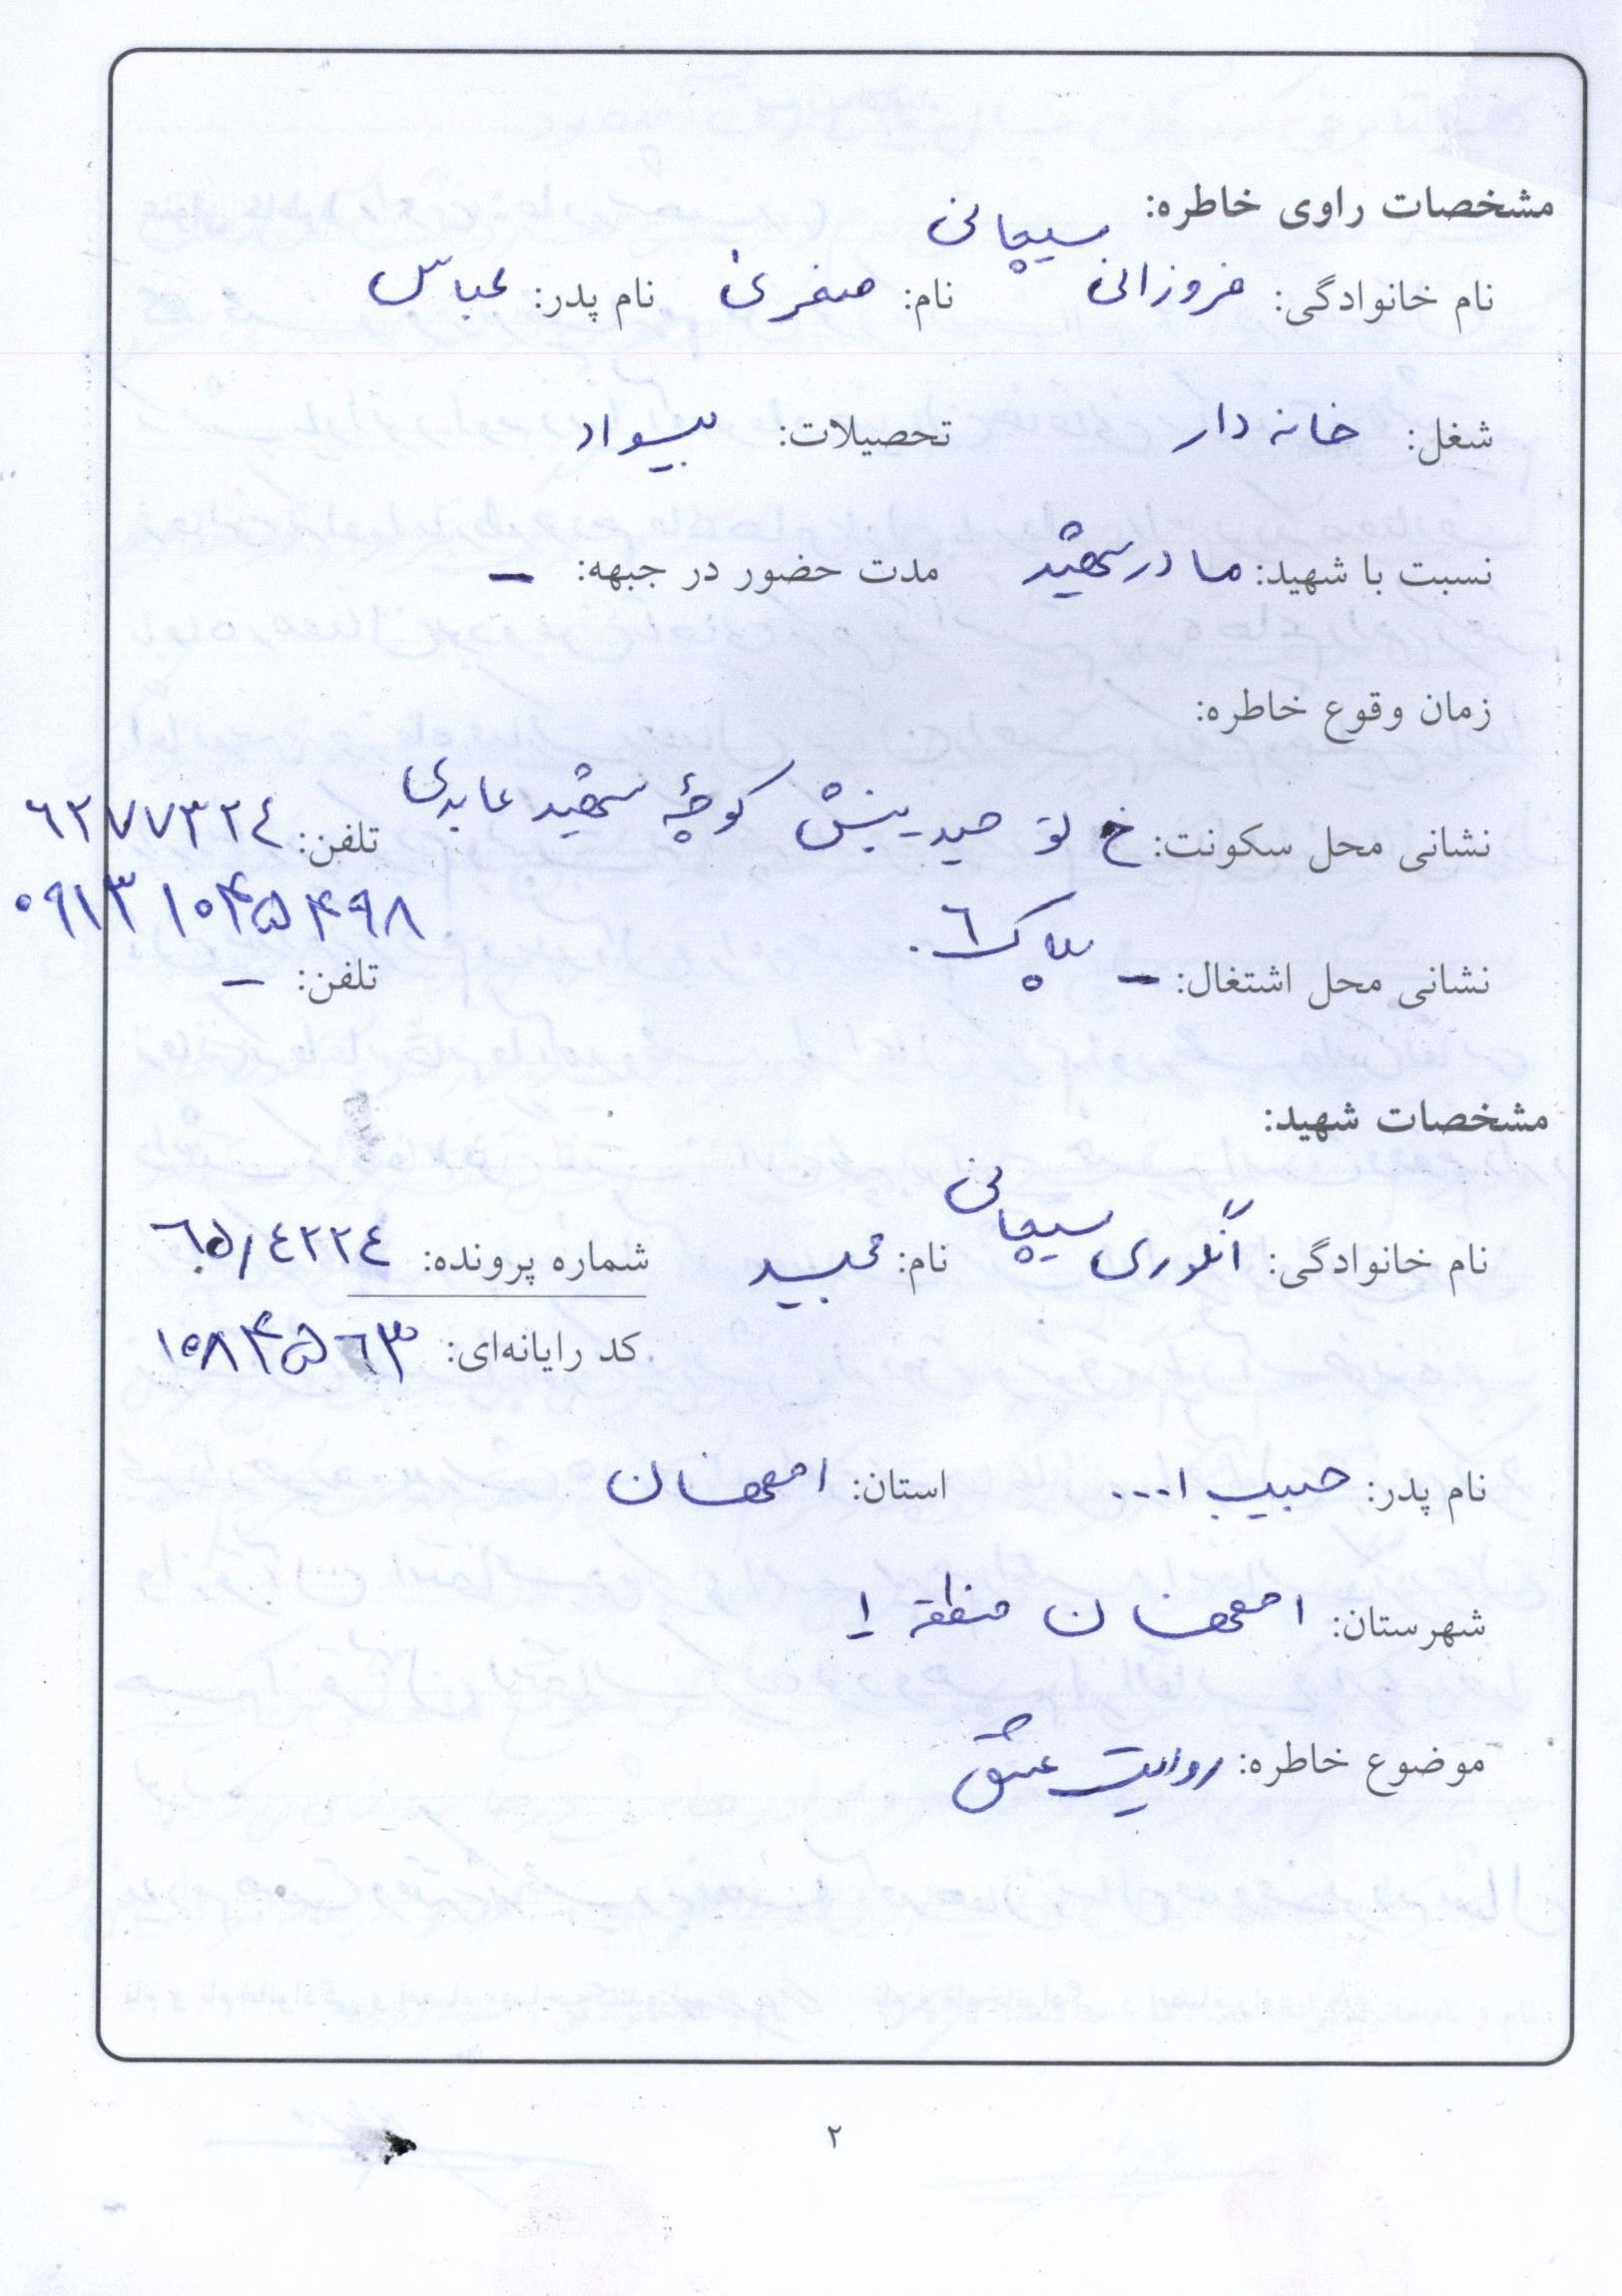 مشخصات راوی خاطره:
نام خانوادگی: فروزانی سیچانی نام: صغری نام پدر: عباس
شغل: خانه دار تحصیلات: بیسواد
نسبت با شهید: مادر شهید مدت حضور در جبهه: –
زمان وقوع خاطره:
نشانی محل سکونت: خ کوچهٔ شهید عابدی تلفن: ٦٢٧٧٣٢٤
پلاک ٦٠ ۰۹۱۳۱۰۴۵۴۹۸
نشانی محل اشتغال: – تلفن: –
مشخصات شهید:
نام خانوادگی: سیچانی نام: مجید شماره پرونده: ٦٥/٤٢٢٤
کد رایانه‌ای: ۱۰۸۴۵٦۳
نام پدر: حبیب ا... استان: اصفهان
شهرستان: اصفهان منطقه ۱
موضوع خاطره: روایت عشق
۲